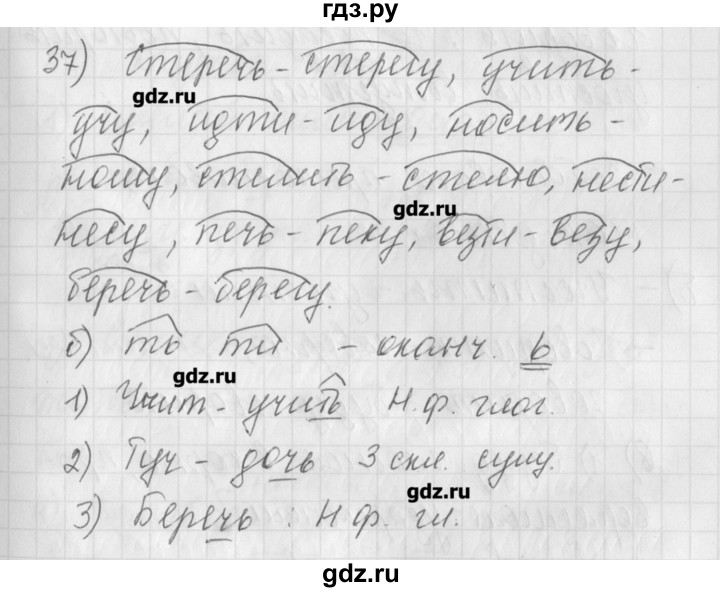 гдз.ру
37) Стеречь - стерегу, учить -
gdz.ru
учу, идти - иду, носить -
ношу, стелить - стелю, нести -
gdz.ru
несу, печь - пеку, везти - везу,
беречь - берегу.
б) ть ти - оканч. ь
gdz.ru
1) Учит - учить Н.ф. глаг.
2) Туч - дочь 3 скл. сущ.
gdz.ru
3) Беречь : Н.ф. гл.
gdz.ru